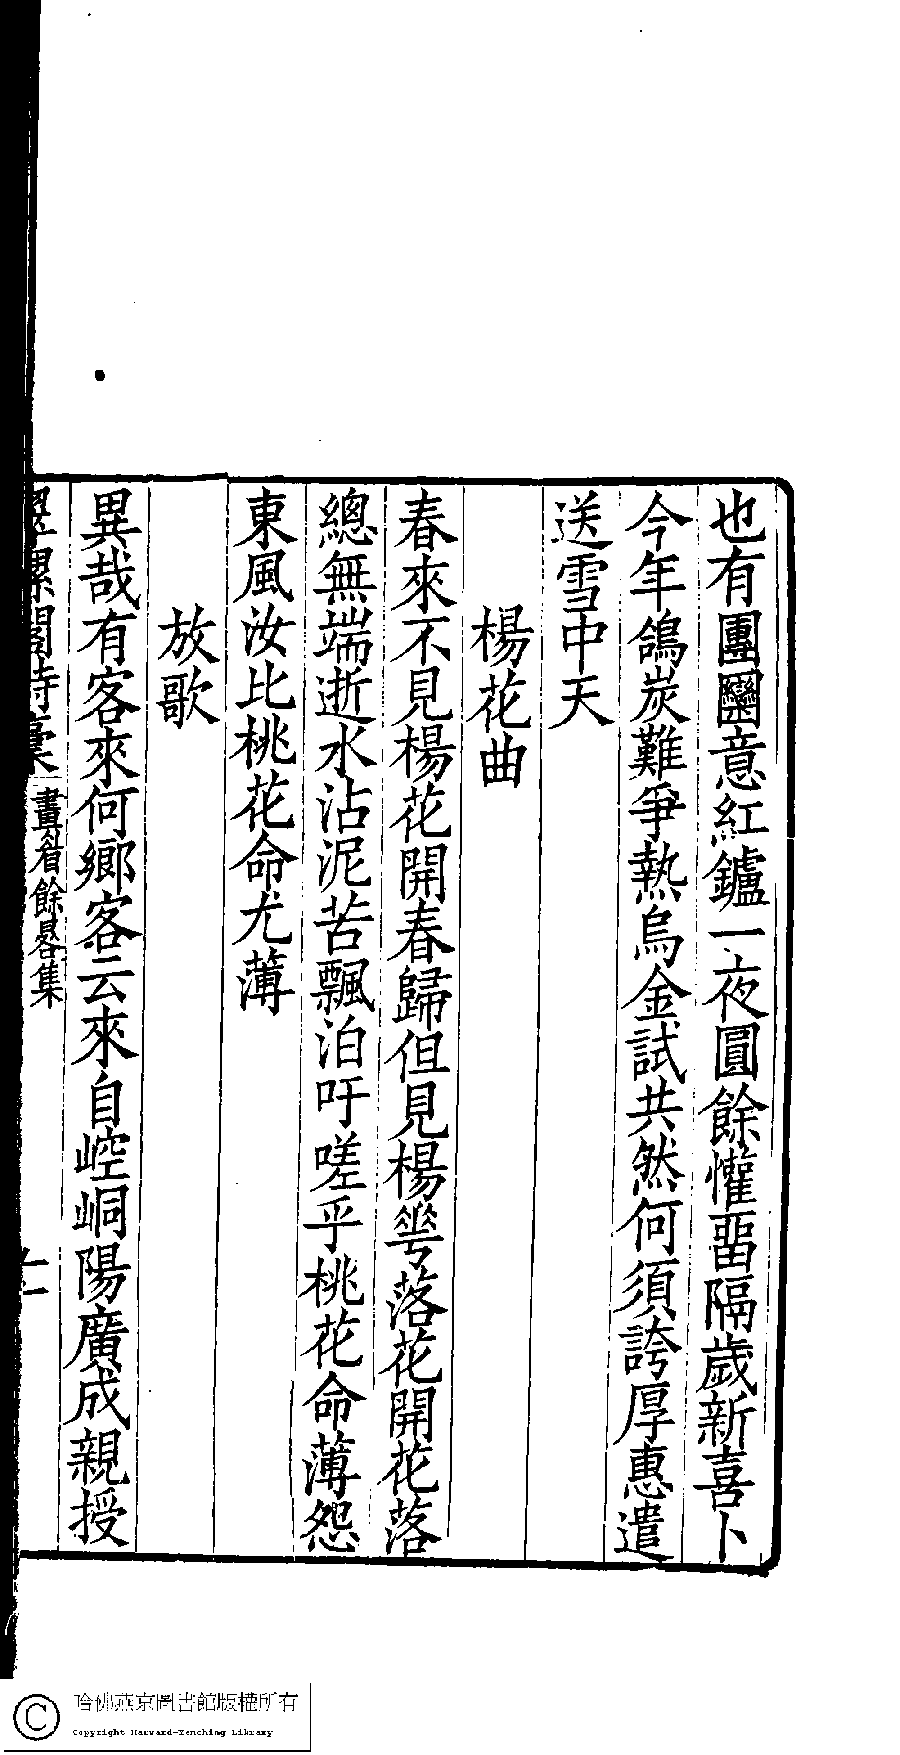 也有團圞意紅鑪一夜圓餘懽畱隔歲新喜卜
今年鴿炭難爭熱烏金試共然何須誇厚惠遣
送雪中天
楊花曲
春來不見楊花開春歸但見楊蕚落花開花落
總無端逝水沾泥苦飄泊吁嗟乎桃花命薄怨
東風汝比桃花命尤薄
放歌
異哉有客來何鄉客云來自崆峒陽廣成親授
螺閣詩稾 畫省餘晷集
哈佛燕京圖書館版權所有
Copyright Harvard-Yenching Library